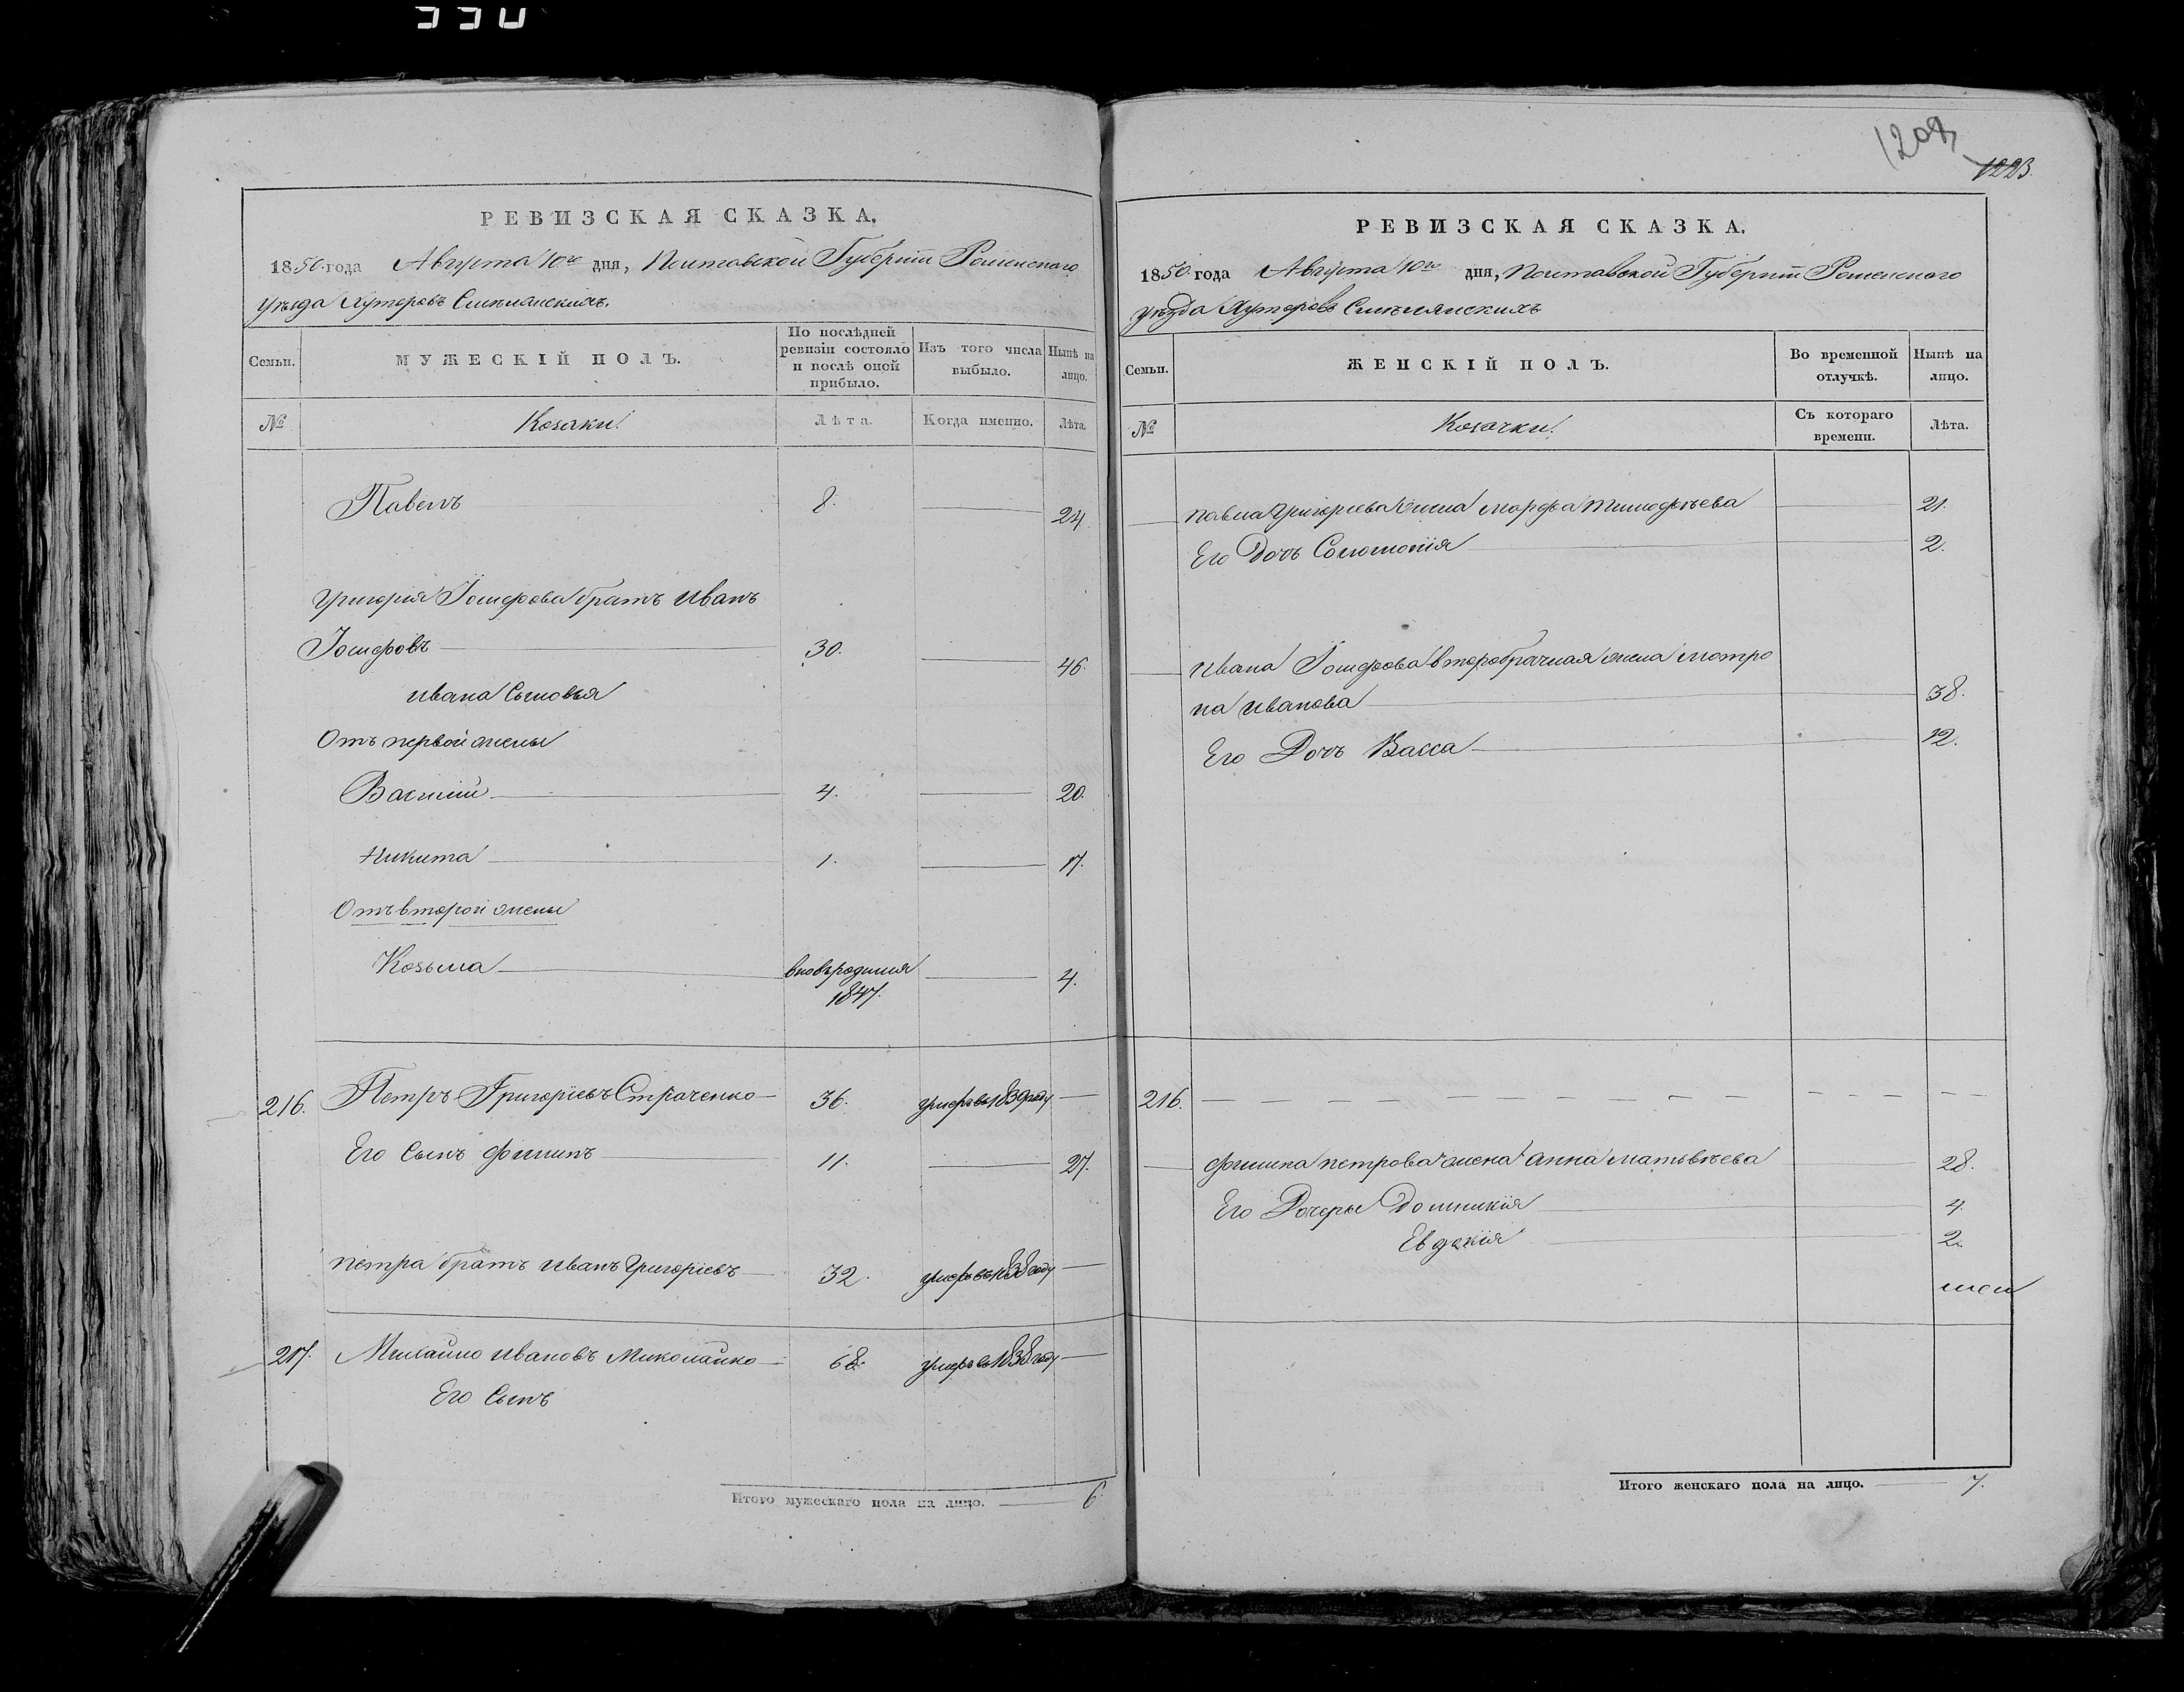 1209
1223.
РЕВИЗСКАЯ СКАЗКА.
1850 года Августа 10го дня, Полтавской Губерніи Роменскаго
уѣзда Хуторовъ Смѣлянскихъ.
Семьи.
МУЖЕСКІЙ ПОЛЪ.
По послѣдней ревизіи состояло и послѣ оной прибыло.
Изъ того числа выбыло.
Нынѣ на лицо.
№
Козаки.
Лѣта.
Когда именно.
Лѣта.
Павелъ 8. 24
Григорія Іосифова братъ Иванъ
Іосифовъ 30. 46.
Ивана Сыновья
Отъ первой жены
Василій 4. 20.
Никита 1. 17.
Отъ второй жены
Козьма вновьродился 4.
1847.
216. Петръ Григоріевъ Страченко 36. умеръ въ 1839 году
Его Сынъ Филипъ 11. 27.
Петра братъ Иванъ Григоріевъ 32. умеръ въ 1838 году
217. Михайло Ивановъ Миколайко 68. умеръ въ 1838 году
Его Сынъ
Итого мужескаго пола на лицо. 6.
РЕВИЗСКАЯ СКАЗКА.
1850 года Августа 10го дня, Полтавской Губерніи Роменскаго
уѣзда Хуторовъ Смѣлянскихъ
Семьи.
ЖЕНСКІЙ ПОЛЪ.
Во временной отлучкѣ.
Нынѣ на лицо.
№
Козачки.
Съ котораго времени.
Лѣта.
Павла Григорьева жена Марфа Тимофѣева 21.
Его Дочь Соломонія 2.
Ивана Іосифова второбрачная жена Мотро
на Иванова 38.
Его Дочь Васса 12.
216.
Филипа Петрова жена Анна Матвѣева 28.
Его Дочери Домникія 4.
Евдокія 2.
Итого женскаго пола на лицо. 7.